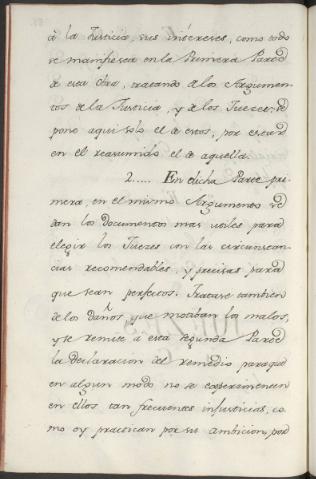 á la Justicia, sus intereses, como todo
se manifiesta en la Primera Parte
de esta obra, tratando á los Argumen-
tos de la Justicia, y de los Jueces: se
pone aqui solo el de estos, por estar
en el reasumido el de aquella.
2..... En dicha Parte pri-
mera, en el mismo Argumento se
dan los Documentos mas utiles para
elegir los Juezes con las circunstan-
cias recomendables, y precisas para
que sean perfectos. Tratase tambien
de los Daños, que motiban los malos,
y se remite á esta segunda Parte
la declaracion del remedio para que
en algun modo no se experimenten
en ellos tan frecuentes injusticias, co-
mo oy practican por su ambicion, por